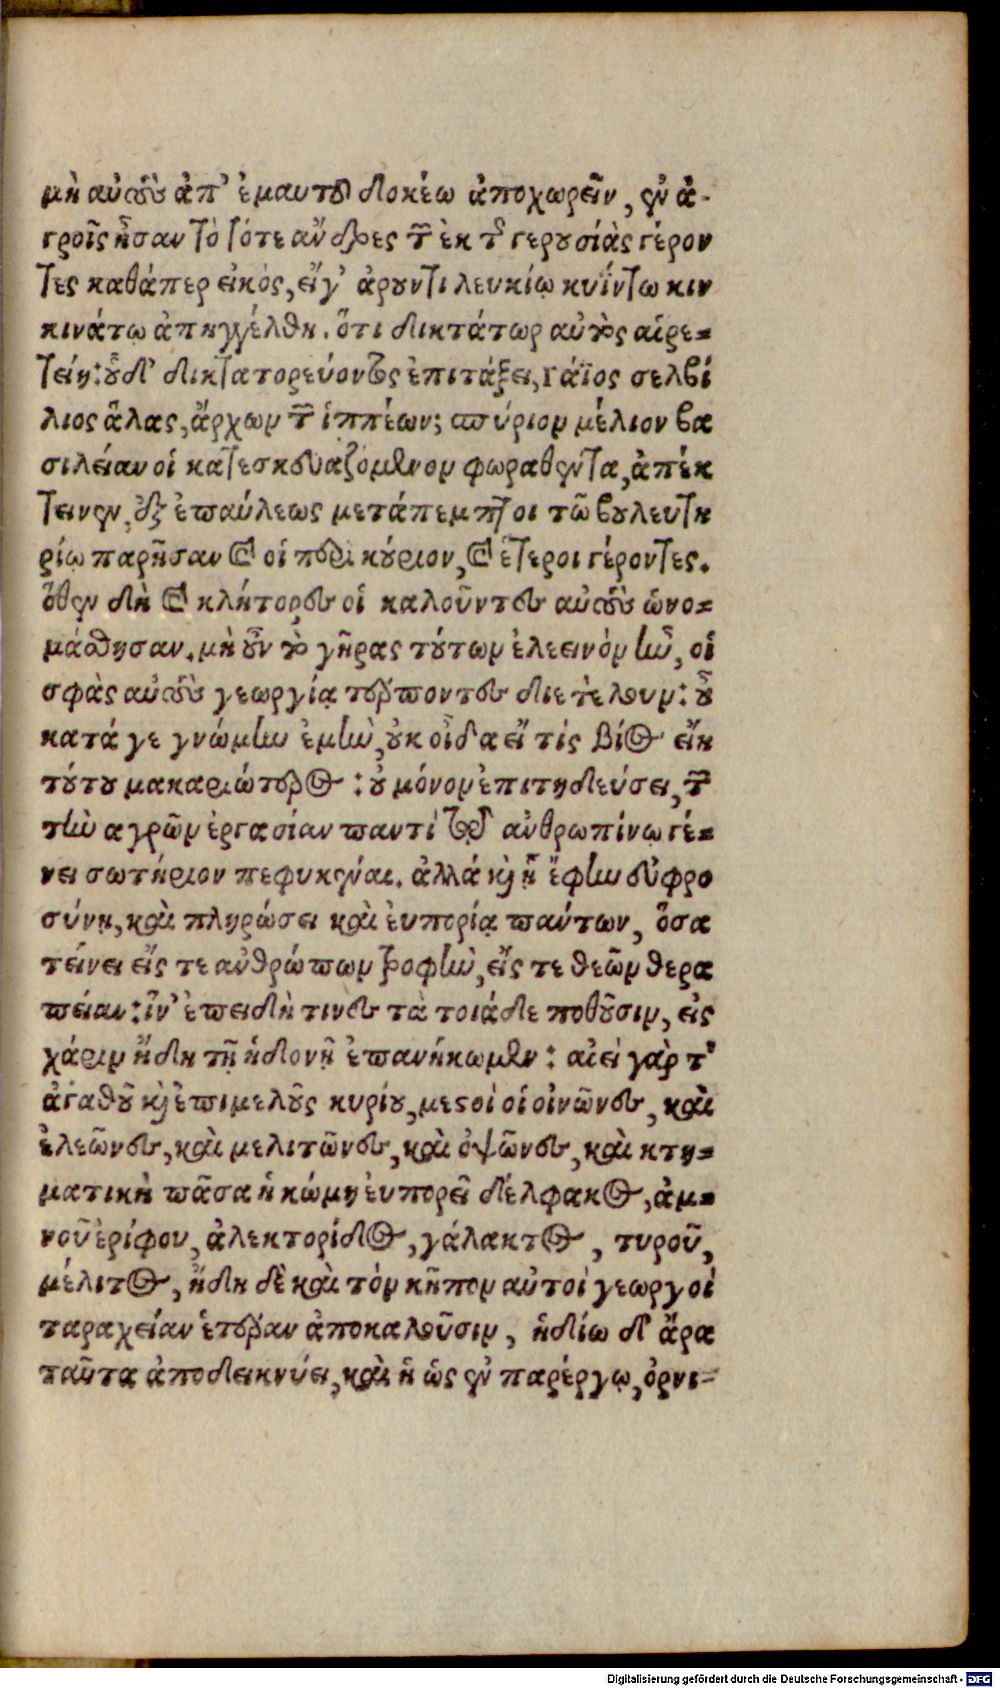 μὴ αὐτοὺς ἀπ’ ἐμαυτοῦ δοκέω ἀποχωρεῖν, ἐν ἀ-
γροῖς ἦσαν τὸ τότε ἄνδρες τῶν ἐκ τῆς γερουσίας γέρον
τες καθάπερ εἰκὸς, εἴγ’ ἀροῦντι λευκίῳ κυΐντῳ κιν
κινάτῳ ἀπηγγέλθη. ὅτι δικτάτωρ αὐτὸς αἱρε-
τείη: οὗ δ’ δικτατορεύοντος ἐπιτάξει, γάϊος σελβί
λιος ἄλας, ἄρχων τῶν ἱππέων; σπύριον μέλιον βα
σιλείαν οἱ κατεσκευαζόμενον φωραθέντα, ἀπέκ
τεινεν, ἐξ ἐπαύλεως μετάπεμπτοι τῷ βουλευτη
ρίῳ παρῆσαν καὶ οἱ περὶ κύριον, καὶ ἕτεροι γέροντες.
ὅθεν δὴ καὶ κλήτορες οἱ καλοῦντες αὐτοὺς ὠνο-
μάσθησαν. μὴ οὖν τὸ γῆρας τούτων ἐλεεινὸν ἦν, οἱ
σφὰς αὐτοὺς γεωργίᾳ τέρποντες διετέλουν: οὗ
κατά γε γνώμην ἐμὴν, οὐκ οἶδα εἴ τίς βίος εἴη
τούτου μακαριώτερος: οὐ μόνον ἐπιτηδεύσει,
τὴν αγρῶν ἐργασίαν παντὶ τῷ ἀνθρωπίνῳ γέ-
νει σωτήριον πεφυκέναι. ἀλλά καὶ ᾗ ἔφην εὐφρο
σύνῃ, καὶ πληρώσει καὶ ἐυπορίᾳ πάντων, ὅσα
τείνει εἴς τε ἀνθρώπων τροφὴν, εἴς τε θεῶν θερα
πείαν: ἵν’ ἐπειδὴ τινες τὰ τοιάδε ποθοῦσιν, εἰς
χάριν ἤδη τῇ ἡδονῇ ἐπανήκωμεν: αἰεὶ γὰρ τοῦ
ἀγαθοῦ καὶ ἐπιμελοῦς κυρίου, μεστοὶ οἱ οἰνῶνες, καὶ
ἐλεῶνες, καὶ μελιτῶνες, καὶ ὀψῶνες, καὶ κτη-
ματικὴ πᾶσα ἡ κώμη ἐυπορεῖ δέλφακος, ἀμ-
νοῦ ἐρίφου, ἀλεκτορίδος, γάλακτος, τυροῦ,
μέλιτος, ἤδη δὲ καὶ τὸν κῆπον αὐτοὶ γεωργοὶ
ταραχείαν ἑτέραν ἀποκαλοῦσιν, ἡδίω δ’ ἄρα
ταῦτα ἀποδεικνύει, καὶ ἡ ὡς ἐν παρέργῳ, ὀρνι-
Digitalisierung gefördert durch die Deutsche Forschungsgemeinschaft - DFG